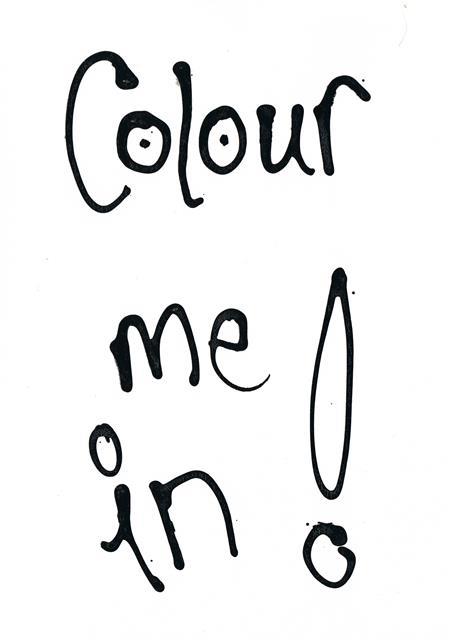 Colour
me
in!